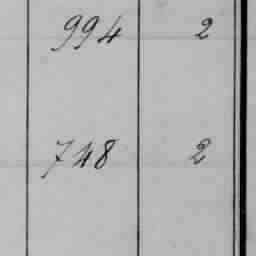 994 2
748 2